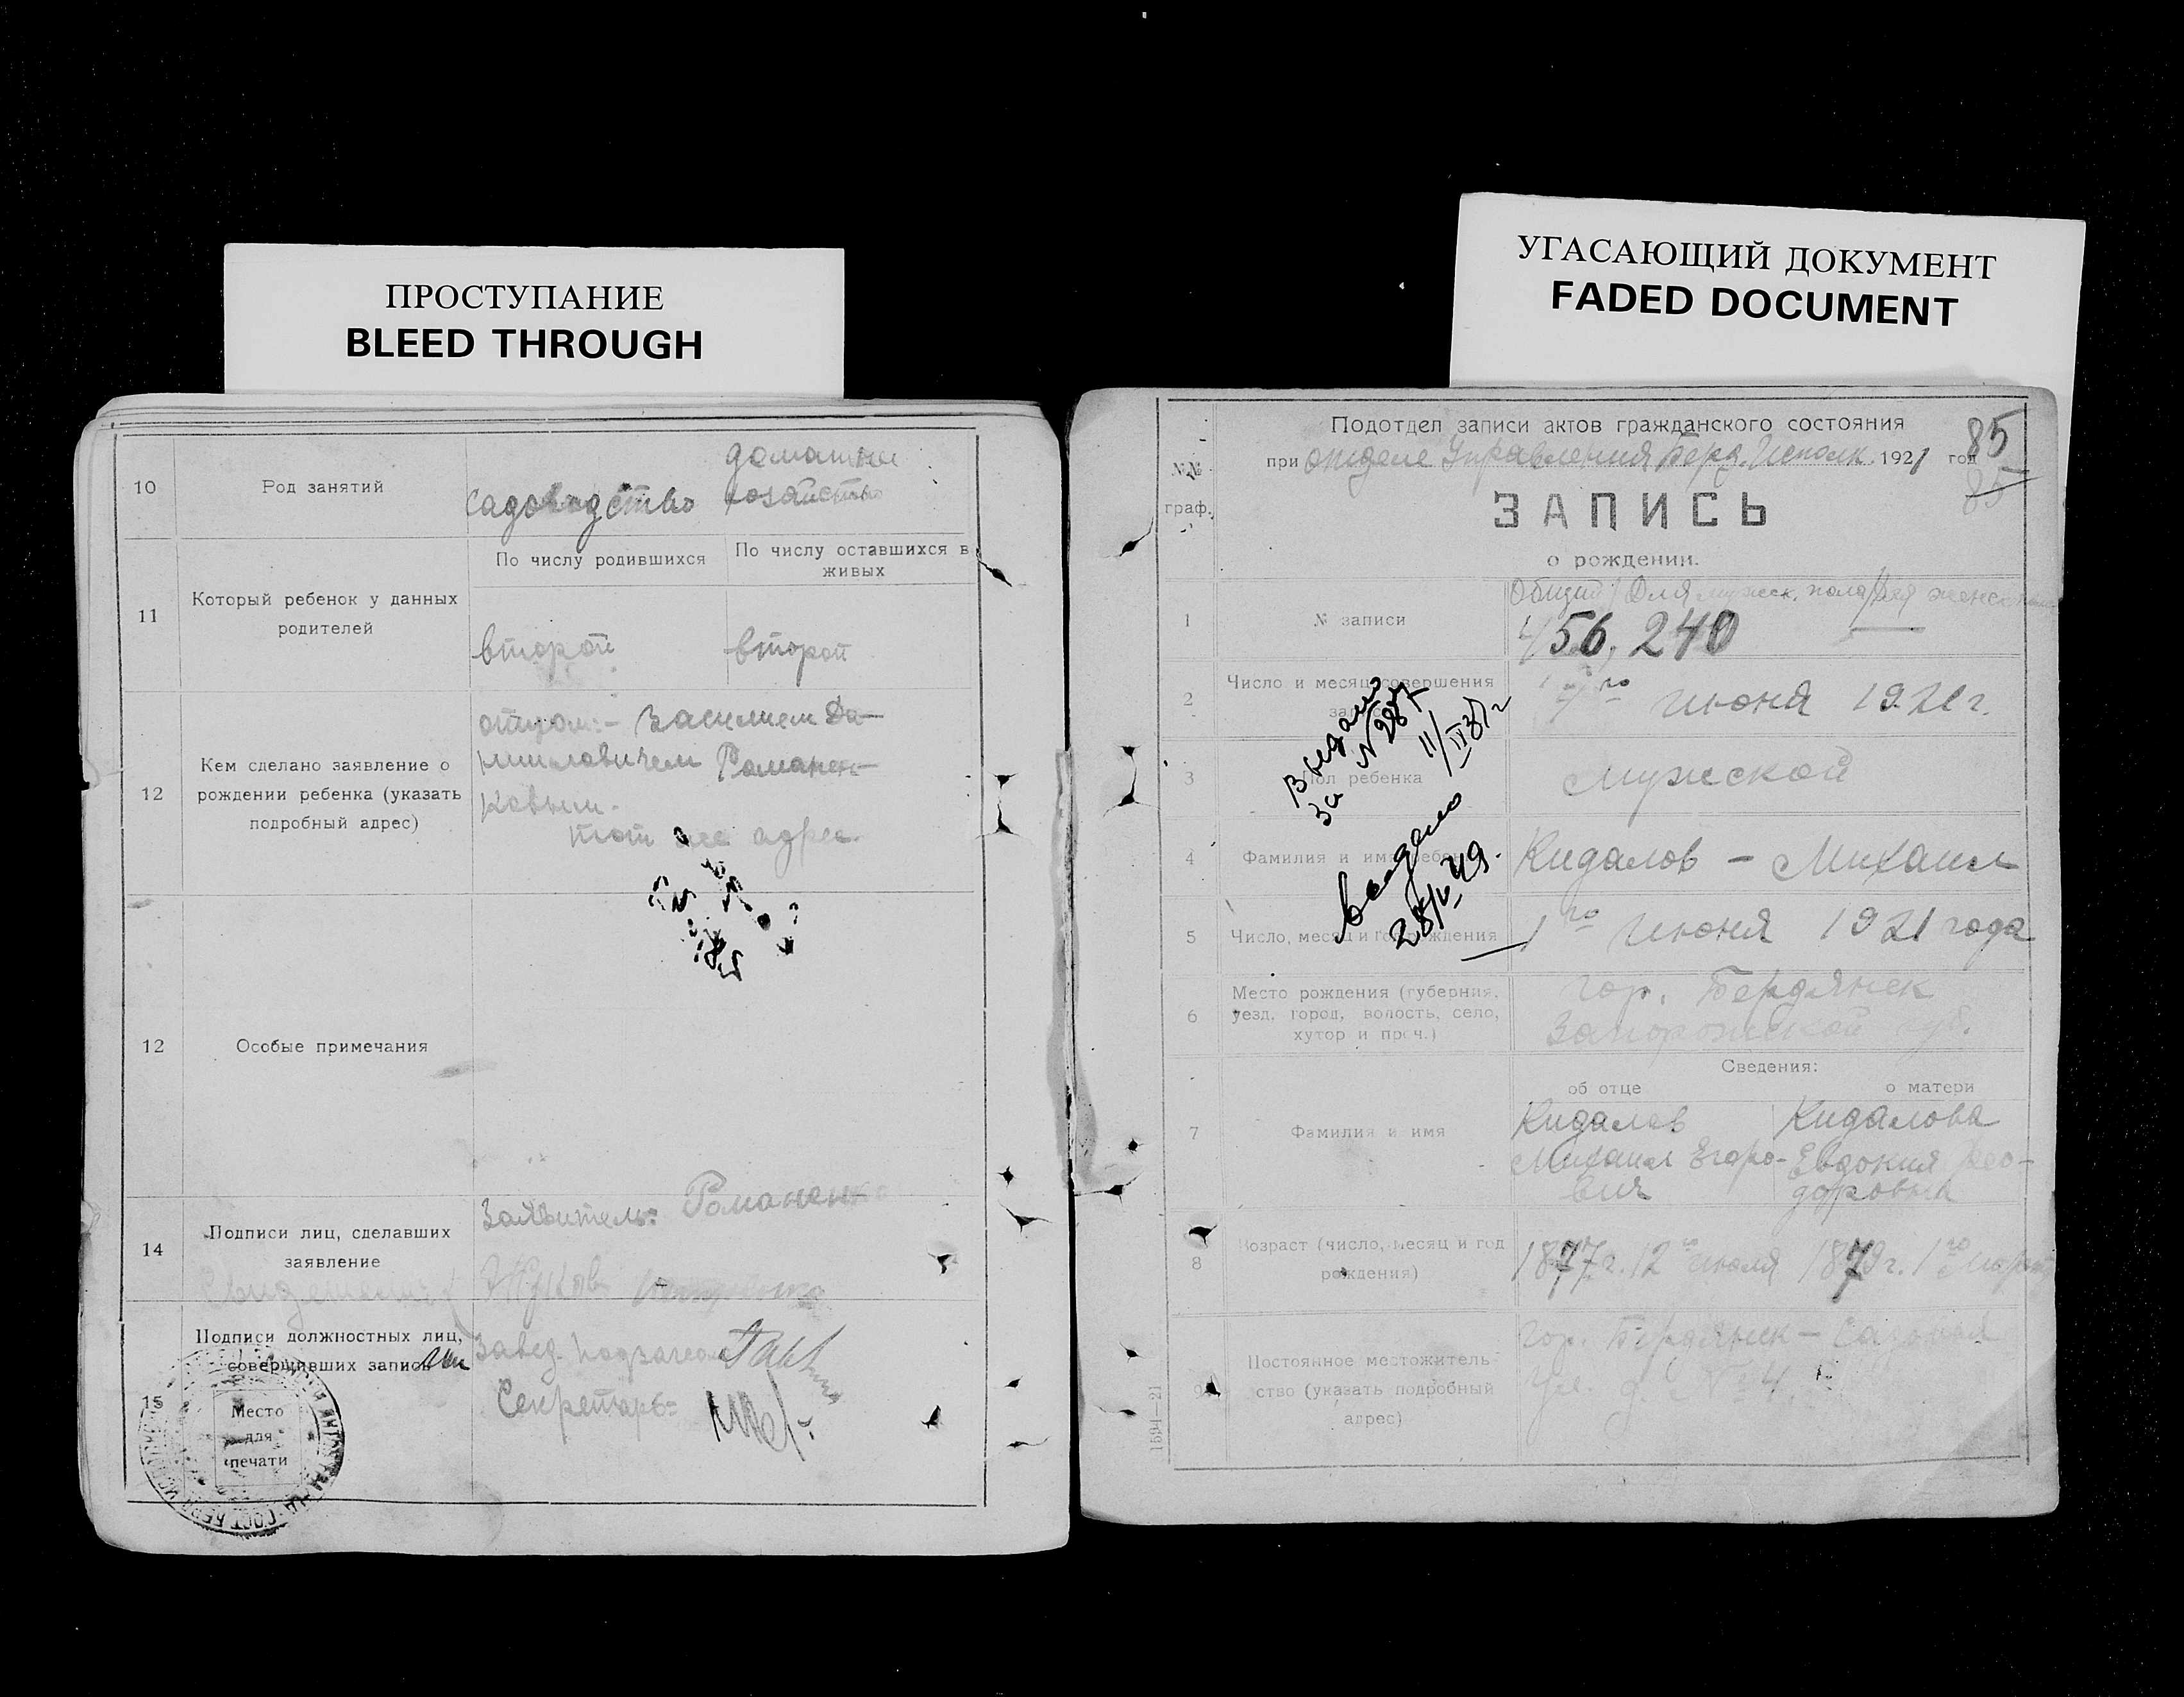 ПРОСТУПАНИЕ
BLEED THROUGH
УГАСАЮЩИЙ ДОКУМЕНТ
FADED DOCUMENT
10
Род занятий
садоводство
домашнее
хозяйство
11
Который ребенок у данных
родителей
По числу родившихся
По числу оставшихся в
живых
второй
второй
12
Кем сделано заявление о
рождении ребенка (указать
подробный адрес)
отцом:- Василием Да-
ниловичем Романен-
ковым.
тот же адрес.
12
Особые примечания
14
Подписи лиц, сделавших
заявление
Заявитель: Романенко
Жуков
15
Подписи должностных лиц,
совершивших запись
Место
для
печати
Завед. подзагсом
Секретарь:
№№
граф.
Подотдел записи актов гражданского состояния
при отделе Управления Берд. Исполк. 1921 год
85
85
ЗАПИСЬ
о рождении.
1
№ записи
Общий / Для мужск. пола / Для женск.
456, 240
2
Число и месяц совершения
7го июня 1921 г.
3
Пол ребенка
мужской
4
Фамилия и имя ребенка
Кидалов - Михаил
5
Число, месяц и год рождения
1го июня 1921 года
6
Место рождения (губерния,
уезд, город, волость, село,
хутор и проч.)
гор. Бердянск
Запорожской губ.
Сведения:
об отце
о матери
7
Фамилия и имя
Кидалов
Михаил Егоро-
вич
Кидалова
Евдокия Фео-
доровна
8
Возраст (число, месяц и год
рождения)
1877 г. 12го июля
1879 г. 1го марта
9
Постоянное местожитель-
ство (указать подробный
адрес)
гор. Бердянск - Садовая
ул. д. № 4.
Выдано
за № 287
11/IV 37 г
Выдано
28/V 49.
1594—21